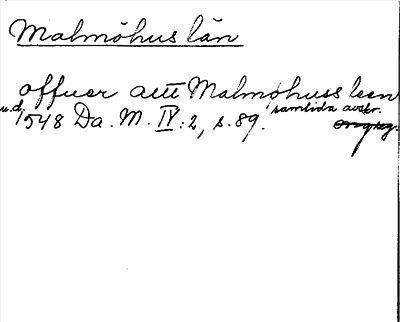 Malmöhus län
offuer alt Malmöhuss leen
u.d. 1548 Da. M. IV:2, s. 89. samtida avskr.